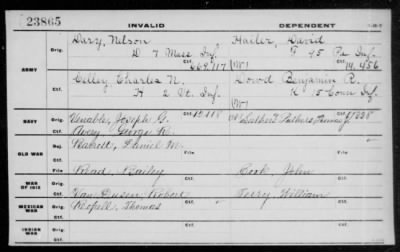 23865
INVALID
DEPENDENT
ARMY
Orig. Dary, Nelson Hailer, David
D 7 Mass Inf. F 45 Pa Inf.
Ctf. 669,117 (W) 14,456
Orig. Cilley, Charles N. Dowd Benjamin R.
H 2 Vt. Inf. K 15 Conn Inf.
Ctf. (W)
NAVY
Orig. Joseph G. 19,118
Ctf. Avery George W.
OLD WAR
Rej. Barrett, Daniel M.
Ctf. Read, Bailey Cook, John
WAR OF 1812
Orig. Van Dusen, Robert Terry, William
Ctf.
MEXICAN WAR
Orig. Thomas
Ctf.
INDIAN WAR
Orig.
Ctf.